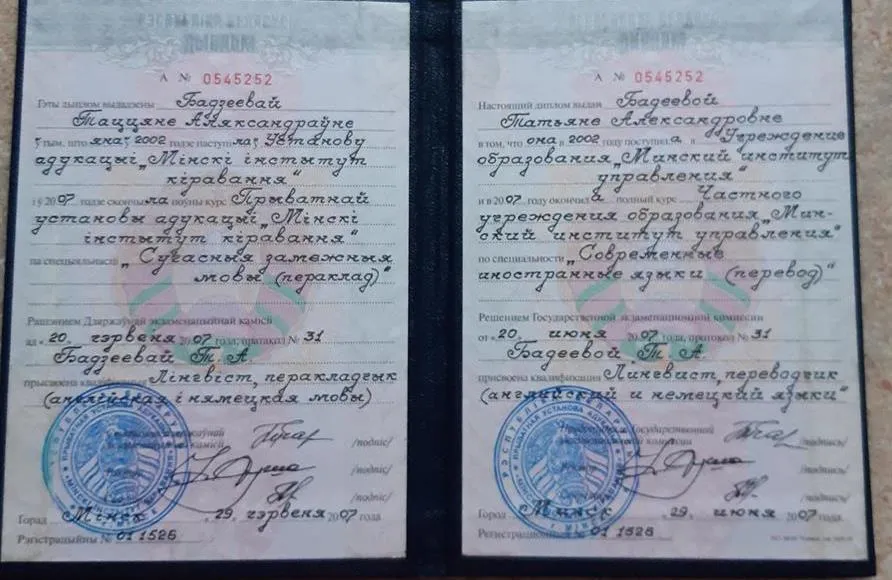 А № 0545252
Гэты дыплом выдадзены Бадзеевай
Таццяне Аляксандраўне
ў тым, што яна ў 2002 годзе паступіла ў Установу
адукацыі „Мінскі інстытут
кіравання“
і ў 2007 годзе скончыла поўны курс Прыватнай
установы адукацыі „Мінскі
інстытут кіравання“
па спецыяльнасці „Сучасныя замежныя
мовы (пераклад)“
Рашэннем Дзяржаўнай экзаменацыйнай камісіі
ад „20„ чэрвеня 2007 года, пратакол № 31
Бадзеевай Т. А.
прысвоена кваліфікацыя Лінгвіст, перакладчык
(англійская і нямецкая мовы)
/подпіс/
/подпіс/
/подпіс/
Горад Мінск „29„ чэрвеня 2007 года.
Рэгістрацыйны № 01 1526
А № 0545252
Настоящий диплом выдан Бадеевой
Татьяне Александровне
в том, что она в 2002 году поступила в Учреждение
образования „Минский институт
управления“
и в 2007 году окончила полный курс Частного
учреждения образования „Мин-
ский институт управления“
по специальности „Современные
иностранные языки (перевод)“
Решением Государственной экзаменационной комиссии
от „20„ июня 2007 года, протокол № 31
Бадеевой Т. А.
присвоена квалификация Лингвист, переводчик
(английский и немецкий языки“
Председатель Государственной
экзаменационной комиссии /подпись/
Ректор /подпись/
Секретарь /подпись/
Город Минск „29„ июня 2007 года.
Регистрационный № 01 1526